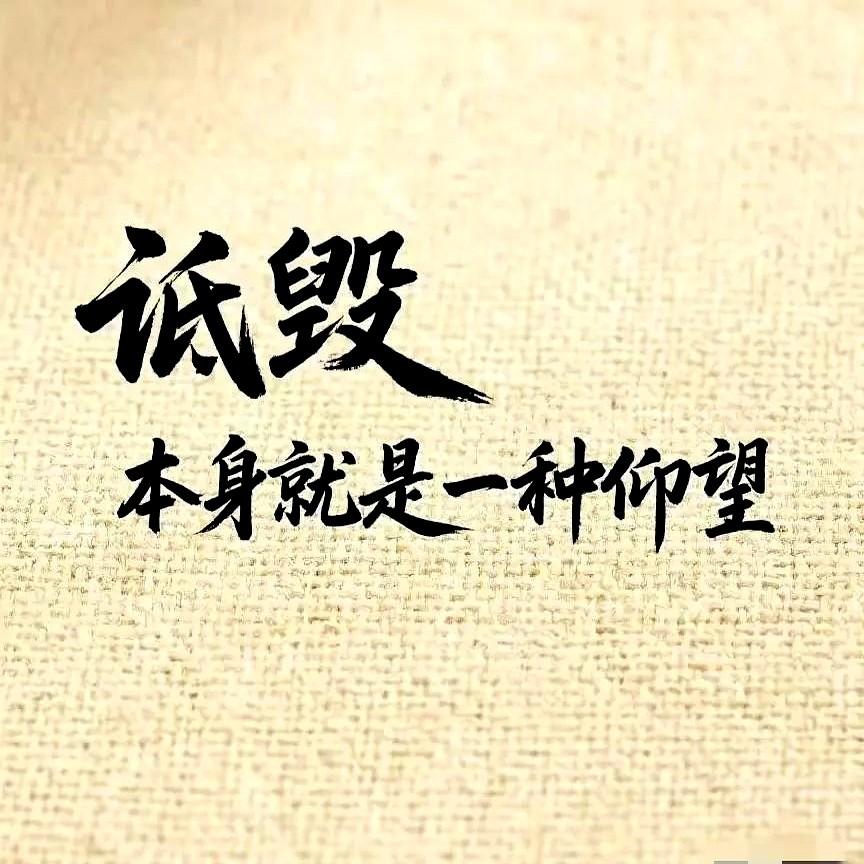 诋毁
本身就是一种仰望